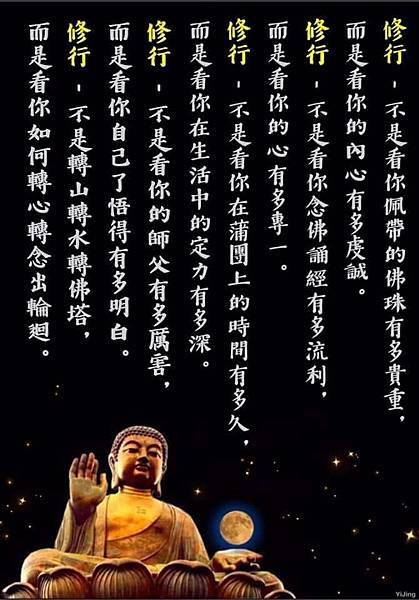 修行 - 不是看你佩帶的佛珠有多貴重，
而是看你的內心有多虔誠。
修行 - 不是看你念佛誦經有多流利，
而是看你的心有多專一。
修行 - 不是看你在蒲團上的時間有多久，
而是看你在生活中的定力有多深。
修行 - 不是看你的師父有多厲害，
而是看你自己了悟得有多明白。
修行 - 不是轉山轉水轉佛塔，
而是看你如何轉心轉念出輪迴。
YiJing